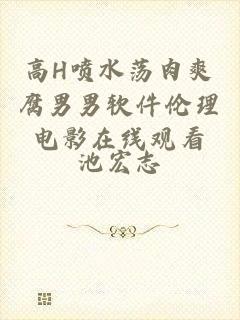 高H喷水荡肉爽
腐男男软件伦理
电影在线观看
池宏志